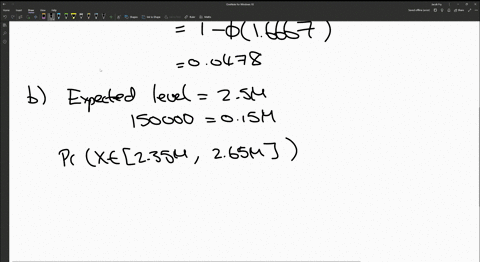 = 1 - Φ(1.6667)
= 0.0478
b) Expected level = 2.5M
150000 = 0.15M
Pr (X∈[2.35M, 2.65M])